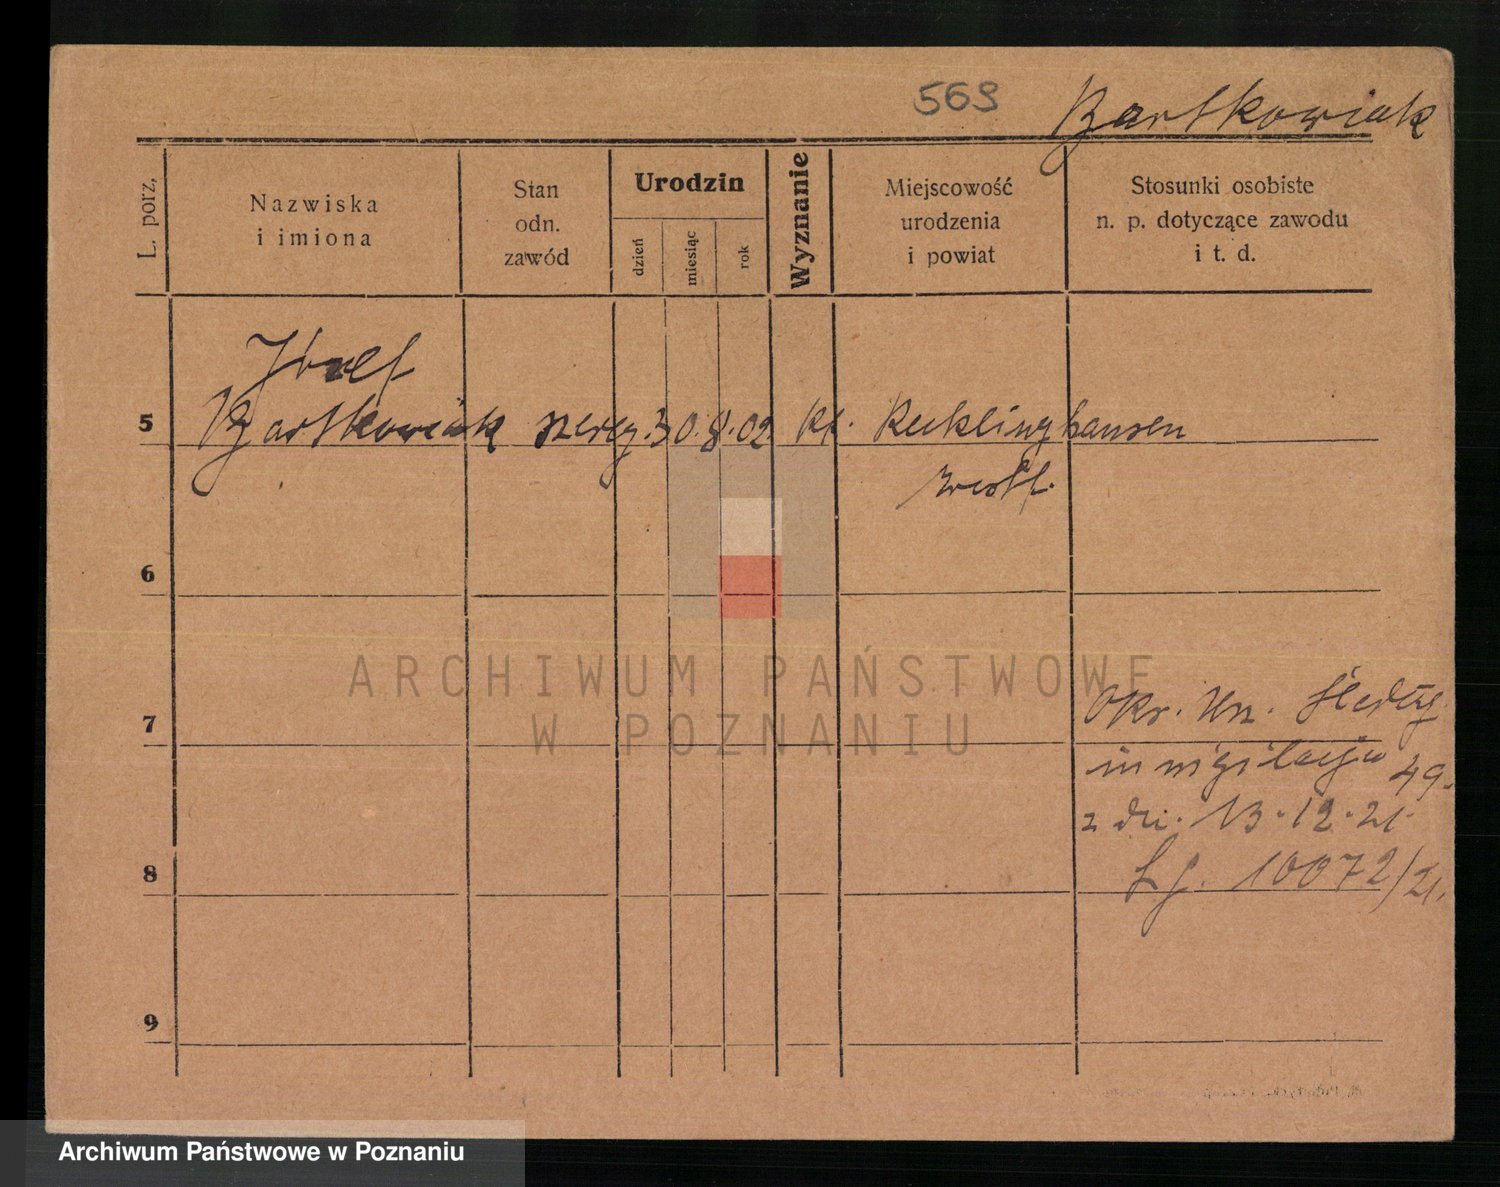 569 Bartkowiak
L. porz.
Nazwiska
i imiona
Stan
odn.
zawód
Urodzin
dzień
miesiąc
rok
Wyznanie
Miejscowość
urodzenia
i powiat
Stosunki osobiste
n. p. dotyczące zawodu
i t. d.
Józef
5 Bartkowiak szereg. 30. 8. 02 kt. Recklinghausen
westf.
6
7 Okr. Urz.
inwigilacja 49.
z dn. 13.12.21
8 L.j. 10072/21.
9
ARCHIWUM PAŃSTWOWE
W POZNANIU
Archiwum Państwowe w Poznaniu